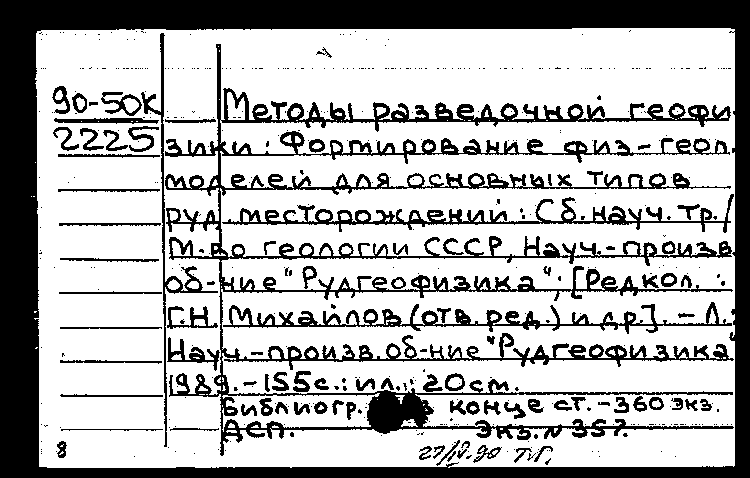 90-50К
2225
Методы разведочной геофи-
зики: Формирование физ-геол.
моделей для основных типов
руд. месторождений: Сб. науч. тр./
М-во геологии СССР, Науч.-произв.
об-ние "Рудгеофизика"; [Редкол.:
Г.Н. Михайлов (отв. ред.) и др.]. - Л.:
Науч.-произв. об-ние "Рудгеофизика"
1989. - 155 с.: ил.; 20 см.
Библиогр. в конце ст. - 360 экз.
ДСП. Экз. N 357.
8 27/IV.90 Т.Г.